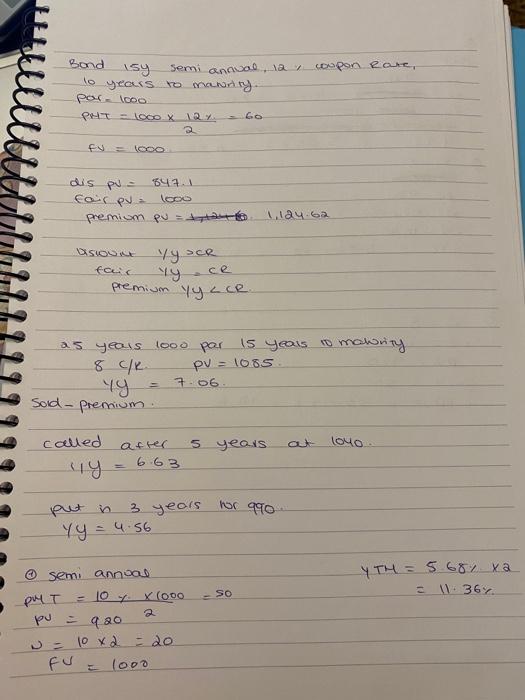 Bond 15y semi annual, 12% coupon Rate,
10 years to maturity.
par = 1000
PMT = 1000 x 12% = 60
2
FV = 1000
dis pv = 847.1
fair pv = 1000
premium pv = 1,124.62
discount Y/y > CR
fair Y/y = CR
premium Y/y < CR
25 years 1000 par 15 years to maturity
8 C/R. PV = 1085.
Y/y = 7.06.
Sold - premium.
called after 5 years at 1040.
Y/y = 6.63
put in 3 years for 990.
Y/y = 4.56
① semi annual YTM = 5.68% x2
PMT = 10% x 1000 = 50 = 11.36%
2
PV = 920
N = 10 x 2 = 20
FV = 1000